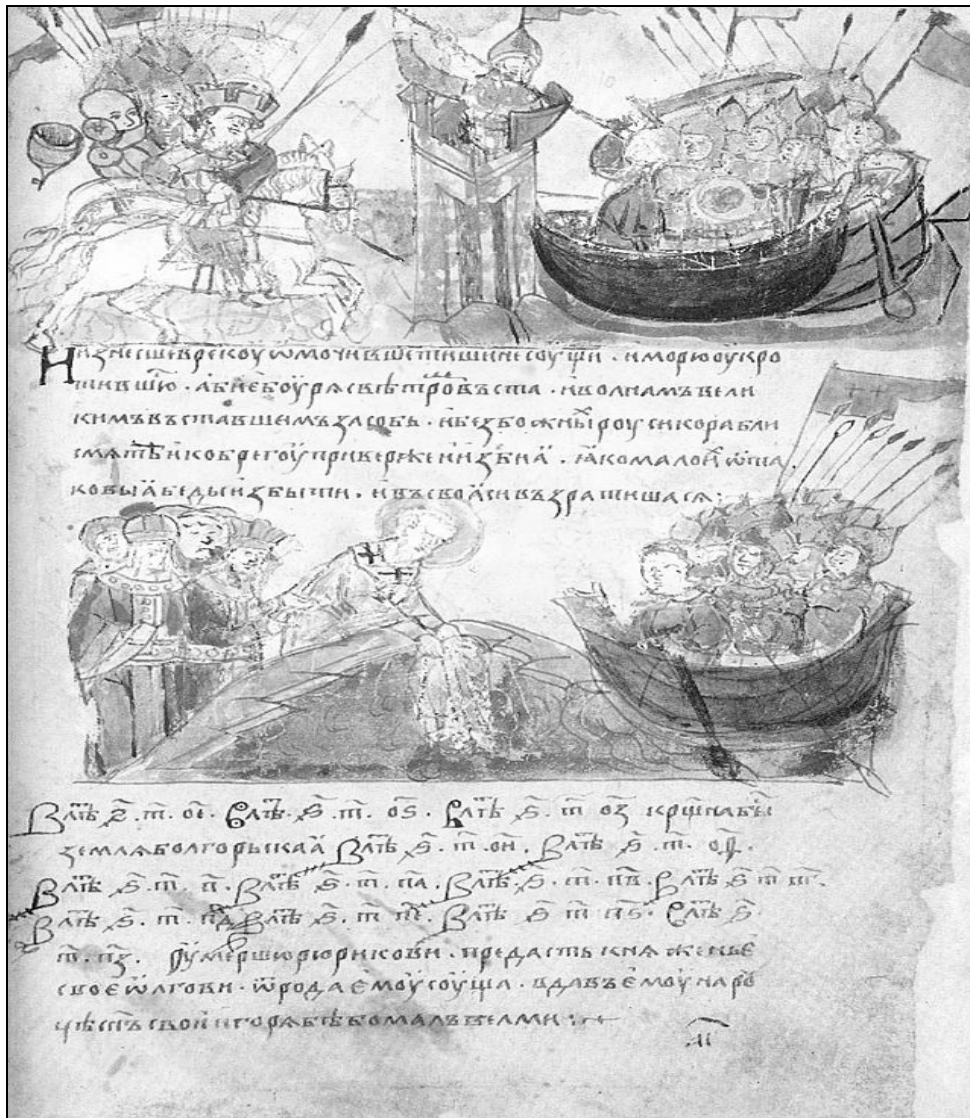 Низнесше в рекоу ѡмочивше тишинѣ соущи · и морю оукро
тившю · абиѥ боурѧ с вѣтромъ въста · и волнамъ вели
кимъ въставшемъ засобь · и безбожныхъ роуси корабли
смѧте и к берегоу приверже и изби ꙗ · ꙗко мало ихъ ѿ та
ковыꙗ беды избыти · и въ своꙗси възратишасѧ ·
В лт҃ѣ ҂ѕ҃ · т҃ · о҃е · В лт҃ѣ · ҂ѕ҃ · т҃ · о҃ѕ · В лт҃ѣ ҂ѕ҃ · т҃ о҃з крщ҃на бы
землѧ болгорьскаꙗ В лт҃ѣ ҂ѕ҃ · т҃ · о҃и · В лт҃ѣ ҂ѕ҃ · т҃ · о҃ѳ ·
В лт҃ѣ ҂ѕ҃ · т҃ · п҃ · В лт҃ѣ ҂ѕ҃ · т҃ · п҃а · В лт҃ѣ · ҂ѕ҃ · т҃ · п҃в · В лт҃ѣ ҂ѕ҃ т҃ п҃г ·
В лт҃ѣ ҂ѕ҃ · т҃ · п҃д · В лт҃ѣ ҂ѕ҃ · т҃ п҃е · В лт҃ѣ ҂ѕ҃ т҃ п҃ѕ · В лт҃ѣ ҂ѕ҃
т҃ · п҃з · оумершю рюрикови · предасть кнѧженьѥ
своѥ ѡлгови · ѿ рода ѥмоу соуща · вдавъ ѥмоу на роу
цѣ снъ свои игорѧ бѣ бо малъ велми ·